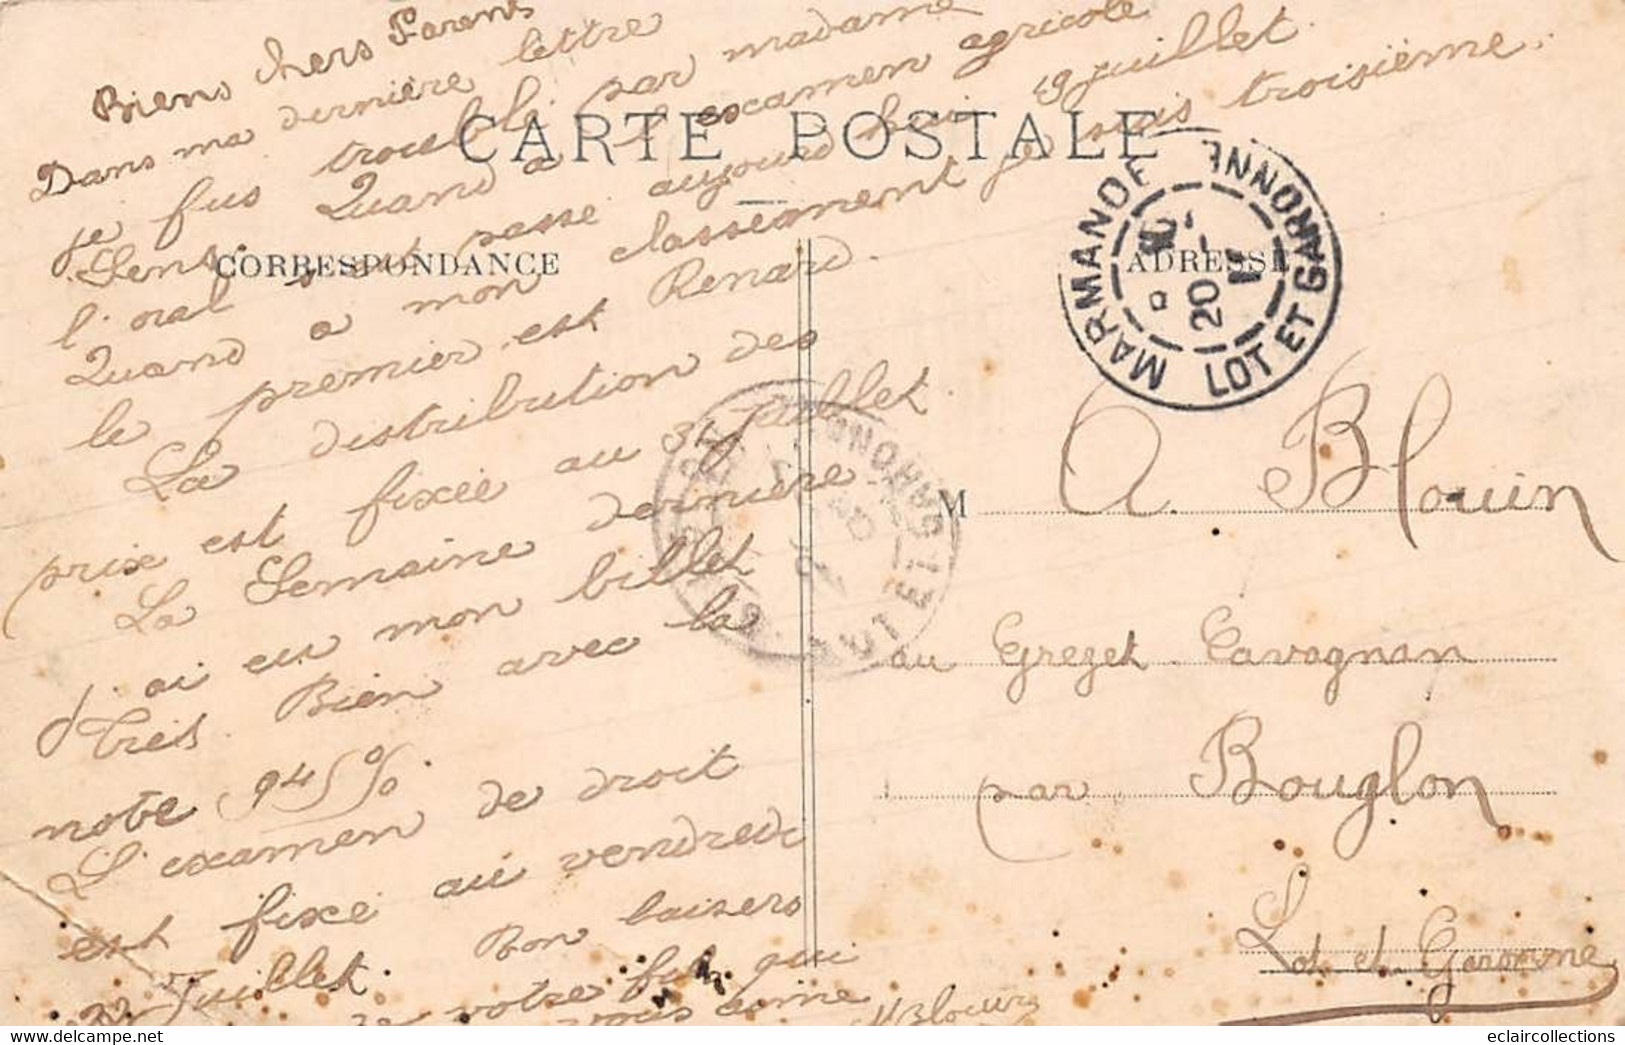 Biens chers Parents
Dans ma dernière lettre
je fus troublé par madame
Sens. Quand a l'examen agricole
l'oral s'est passé aujourd'hui 19 juillet.
Quand a mon classement je suis troisième.
le premier est Renard.
La distribution des
prix est fixée au 31 juillet.
La Semaine dernière
j'ai eu mon billet
très Bien avec la
note 94 %.
L'examen de droit
est fixé au vendredi
22 Juillet. Bon baisers
de votre fils qui
vous aime
CARTE POSTALE
CORRESPONDANCE
ADRESSE
MARMANDE
LOT ET GARONNE
20
M A. Blouin
au Grezet Cavagnan
par Bouglon
Lot et Garonne
eclaircollections